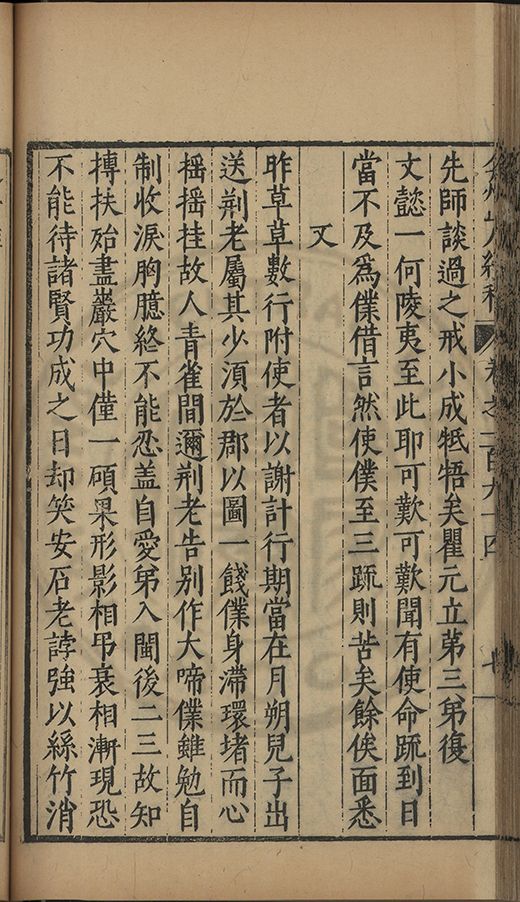 弇州山人續稿 卷之一百九十四
先師談過之戒小成牴牾矣瞿元立第三弟復
文懿一何陵夷至此耶可歎可歎聞有使命疏到日
當不及爲僕借言然使僕至三疏則苦矣餘俟面悉
又
昨草草數行附使者以謝計行期當在月朔兒子出
送荆老屬其少湏於郡以圖一餞僕身滯環堵而心
摇摇挂故人青雀間邇荆老告别作大啼僕雖勉自
制收淚胸臆終不能忍盖自愛弟入閩後二三故知
摶扶殆盡巖穴中僅一碩果形影相弔衰相漸現恐
不能待諸賢功成之日却笑安石老誖強以絲竹消